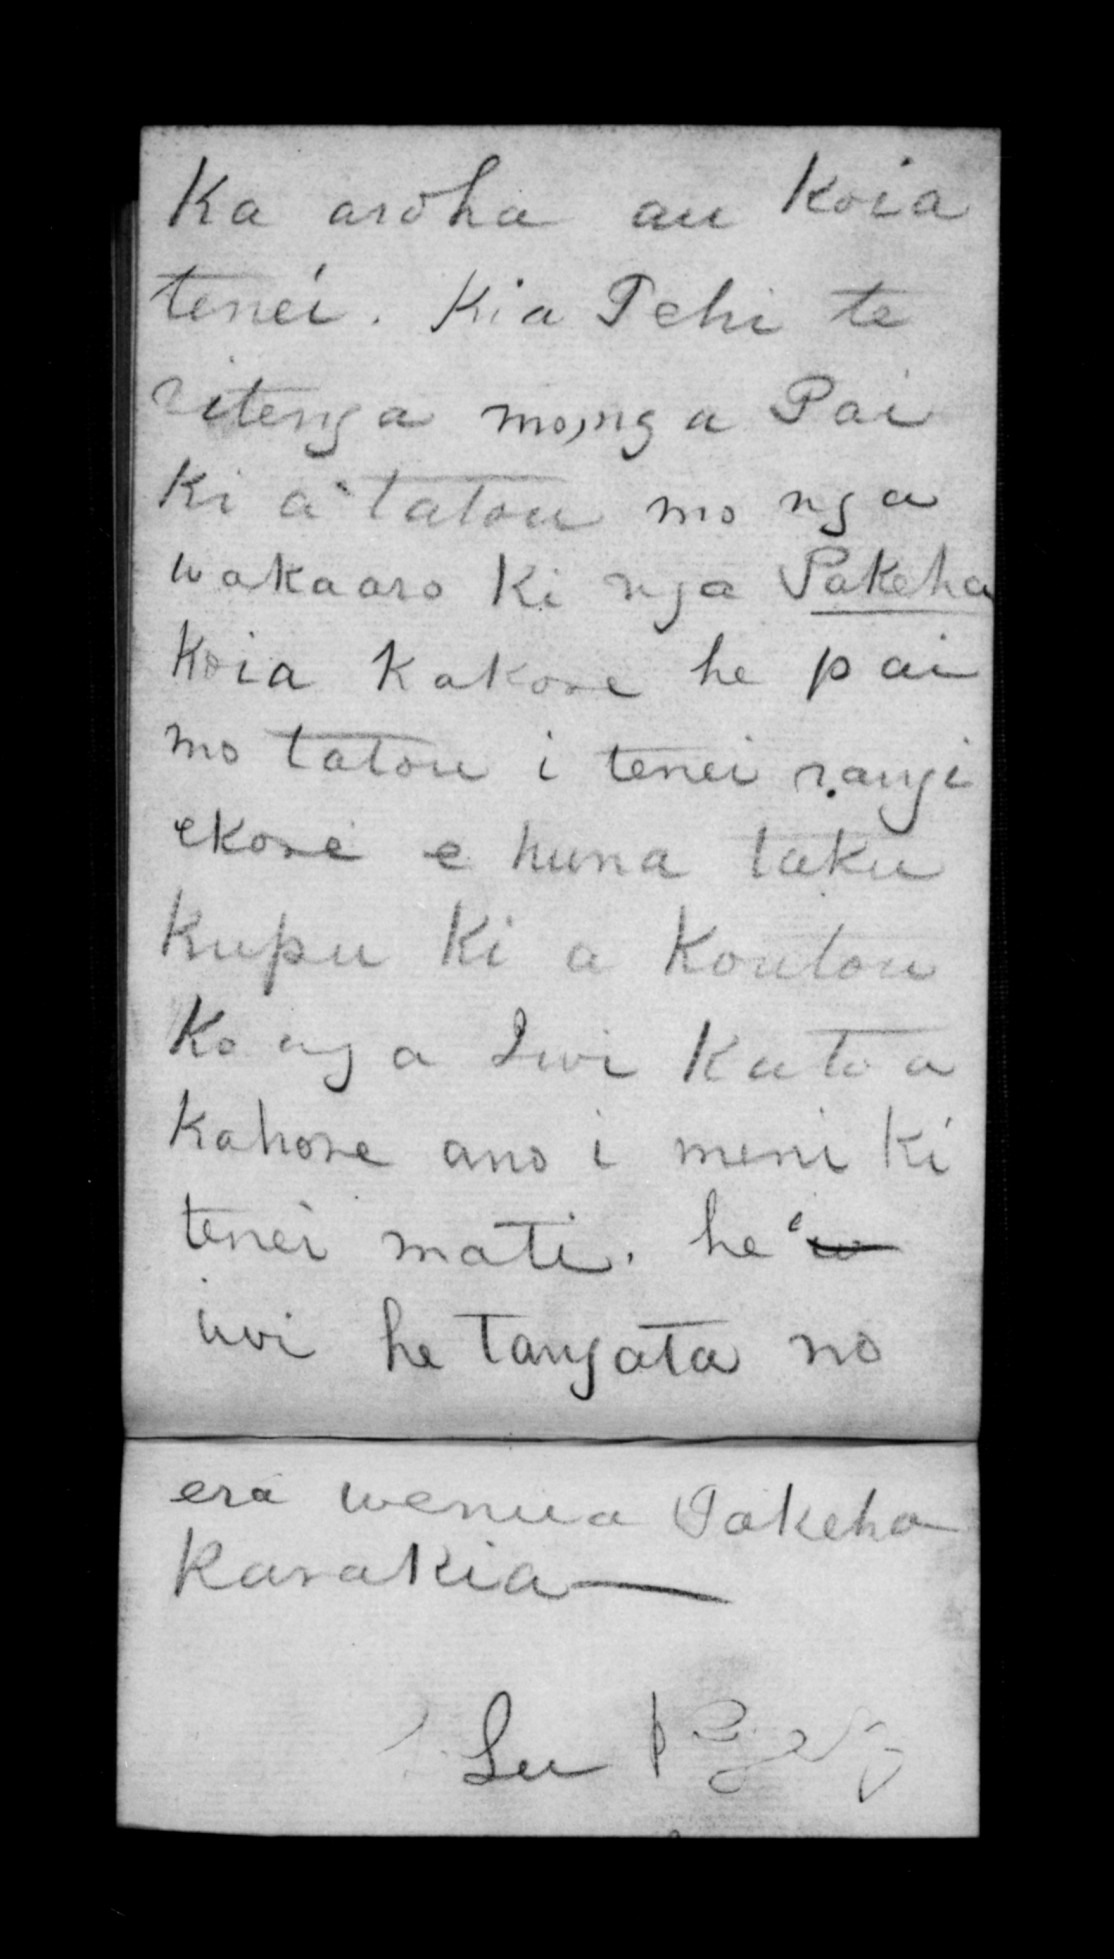 Ka aroha au Koia
tenei. Kia Tehi te
ritenga mo, nga Pai
Ki a tatou mo nga
wakaaro Ki nga Pakeha
Koia Kakore he pai
mo tatou i tenei rangi
ekore e huna taku
Kupu Ki a Koutou
Ko nga Iwi Katoa
Kahore ano i meni Ki
tenei mati. he
iwi he tangata no
era wenua Pakeha
Karakia—
See